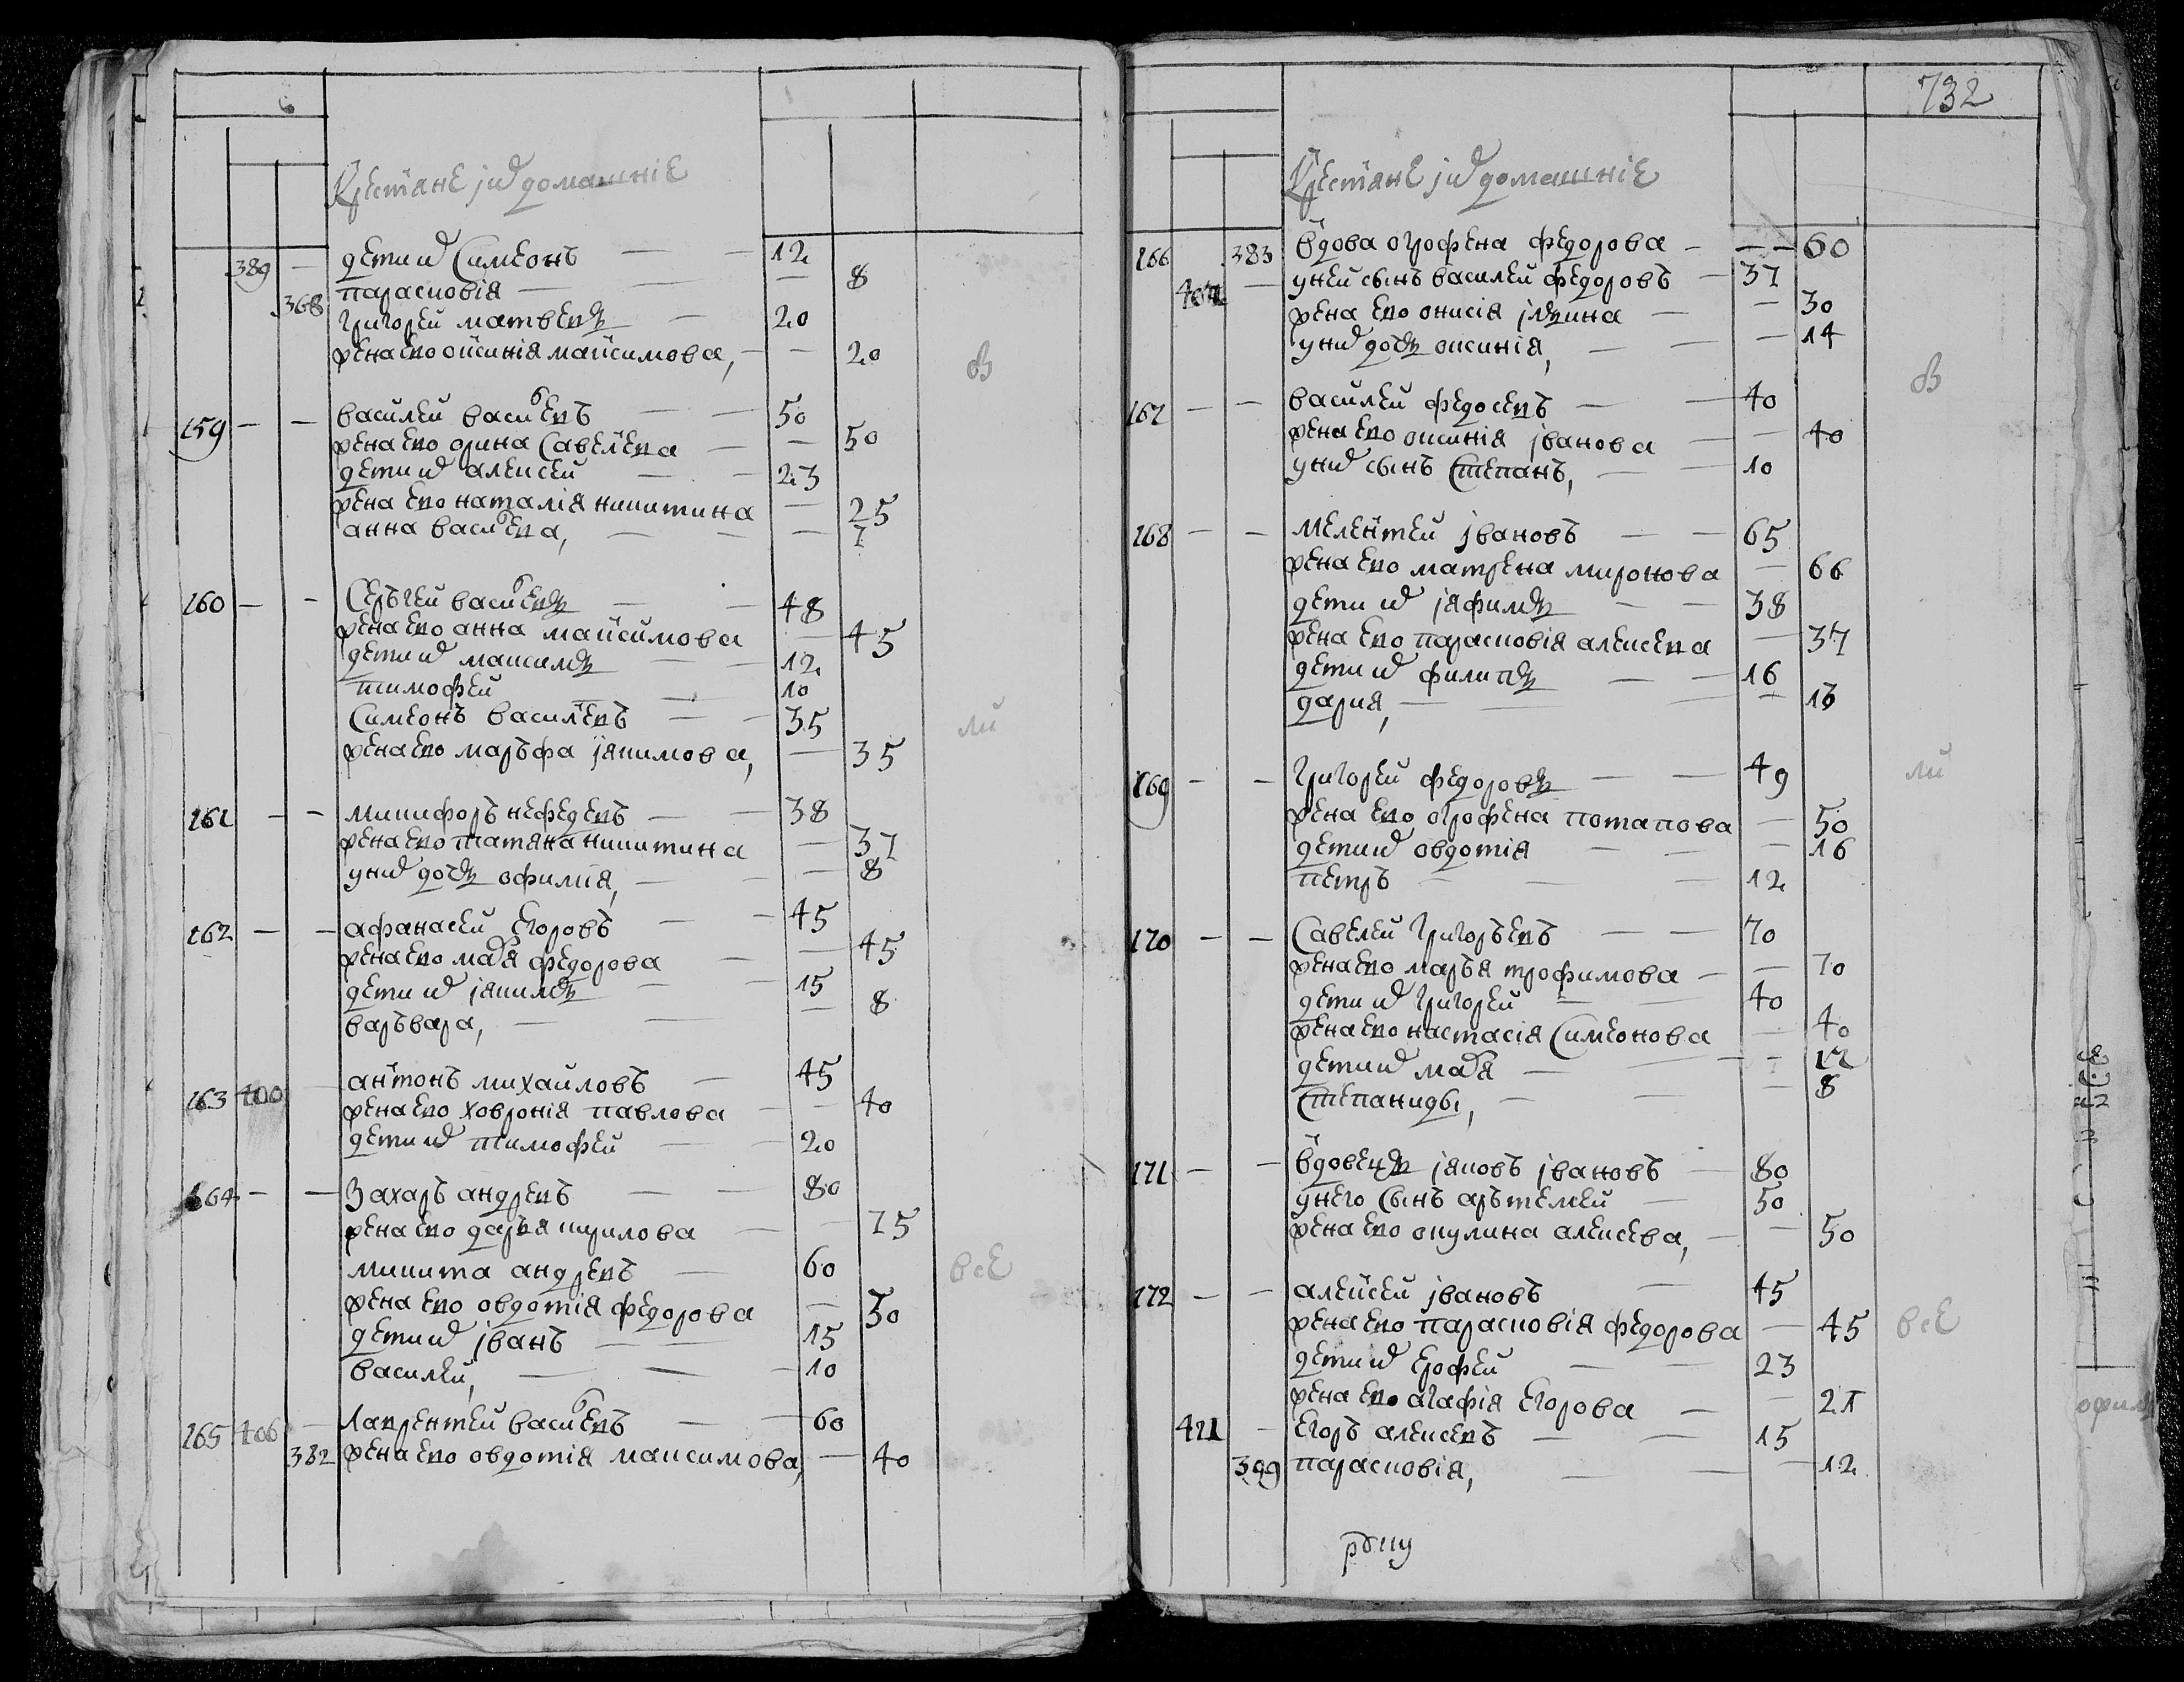 Крестьяне и их домашние
389 — дети их Симеонъ — 12
368 парасковия — 8
григореи матвеевъ — 20
жена ево оксиния максимова, — 20
об
159 — — василеи васильевъ — 50
жена ево орина савельева — 50
дети их алексеи — 23
жена ево наталия никитина — 25
анна васильева, — 7
160 — — Серьгеи васильевъ — 48
жена ево анна максимова — 45
дети их максимъ — 12
тимофеи 10
Симеонъ васильевъ — 35
жена ево маръфа якимова, — 35
ли
161 — — микифоръ нефедевъ — 38
жена ево татьяна никитина — 37
у них дочь офимия, — 8
162 — — афанасеи егоровъ — 45
жена ево марья федорова — 45
дети их якимъ — 15
варъвара, — 8
163 400 — антонъ михаиловъ — 45
жена ево ховрония павлова — 40
дети их тимофеи — 20
164 — — Захаръ андреевъ — 80
жена ево даръя кирилова — 75
микита андреевъ — 60
жена ево овдотия федорова — 50
все
дети их иванъ — 15
василеи, — 10
165 406 — лаврентеи васильевъ — 60
382 жена ево овдотия максимова, — 40
732
Крестьяне и их домашние
166 383 вдова огрофена федорова — 60
407 — у неи сынъ василеи федоровъ — 37
жена ево онисия ильина — 30
у них дочь оксиния, — 14
об
167 — — василеи федосеевъ — 40
жена ево оксиния иванова — 40
у них сынъ Степанъ, — 10
168 — — мелентеи ивановъ — 65
жена ево матрена миронова — 66
дети их якимъ — 38
жена ево парасковия алексеева — 37
дети их филипъ — 16
дария, — 13
169 — — григореи федоровъ — 49
ли
жена ево огрофена потапова — 50
дети их овдотия — 16
петръ — 12
170 — — Савелеи григоръевъ — 70
жена ево маръя трофимова — 70
дети их григореи — 40
жена ево настасия Симеонова — 40
дети их марья — 12
Степаниды, — 8
171 — — вдовецъ яковъ ивановъ — 80
у него сынъ арътемеи — 50
жена ево окулина алексеева, — 50
172 — — алексеи ивановъ — 45
жена ево парасковия федорова — 45
все
дети их ерофеи — 23
жена ево агафия егорова — 21
411 — егоръ алексеевъ — 15
399 парасковия, — 12